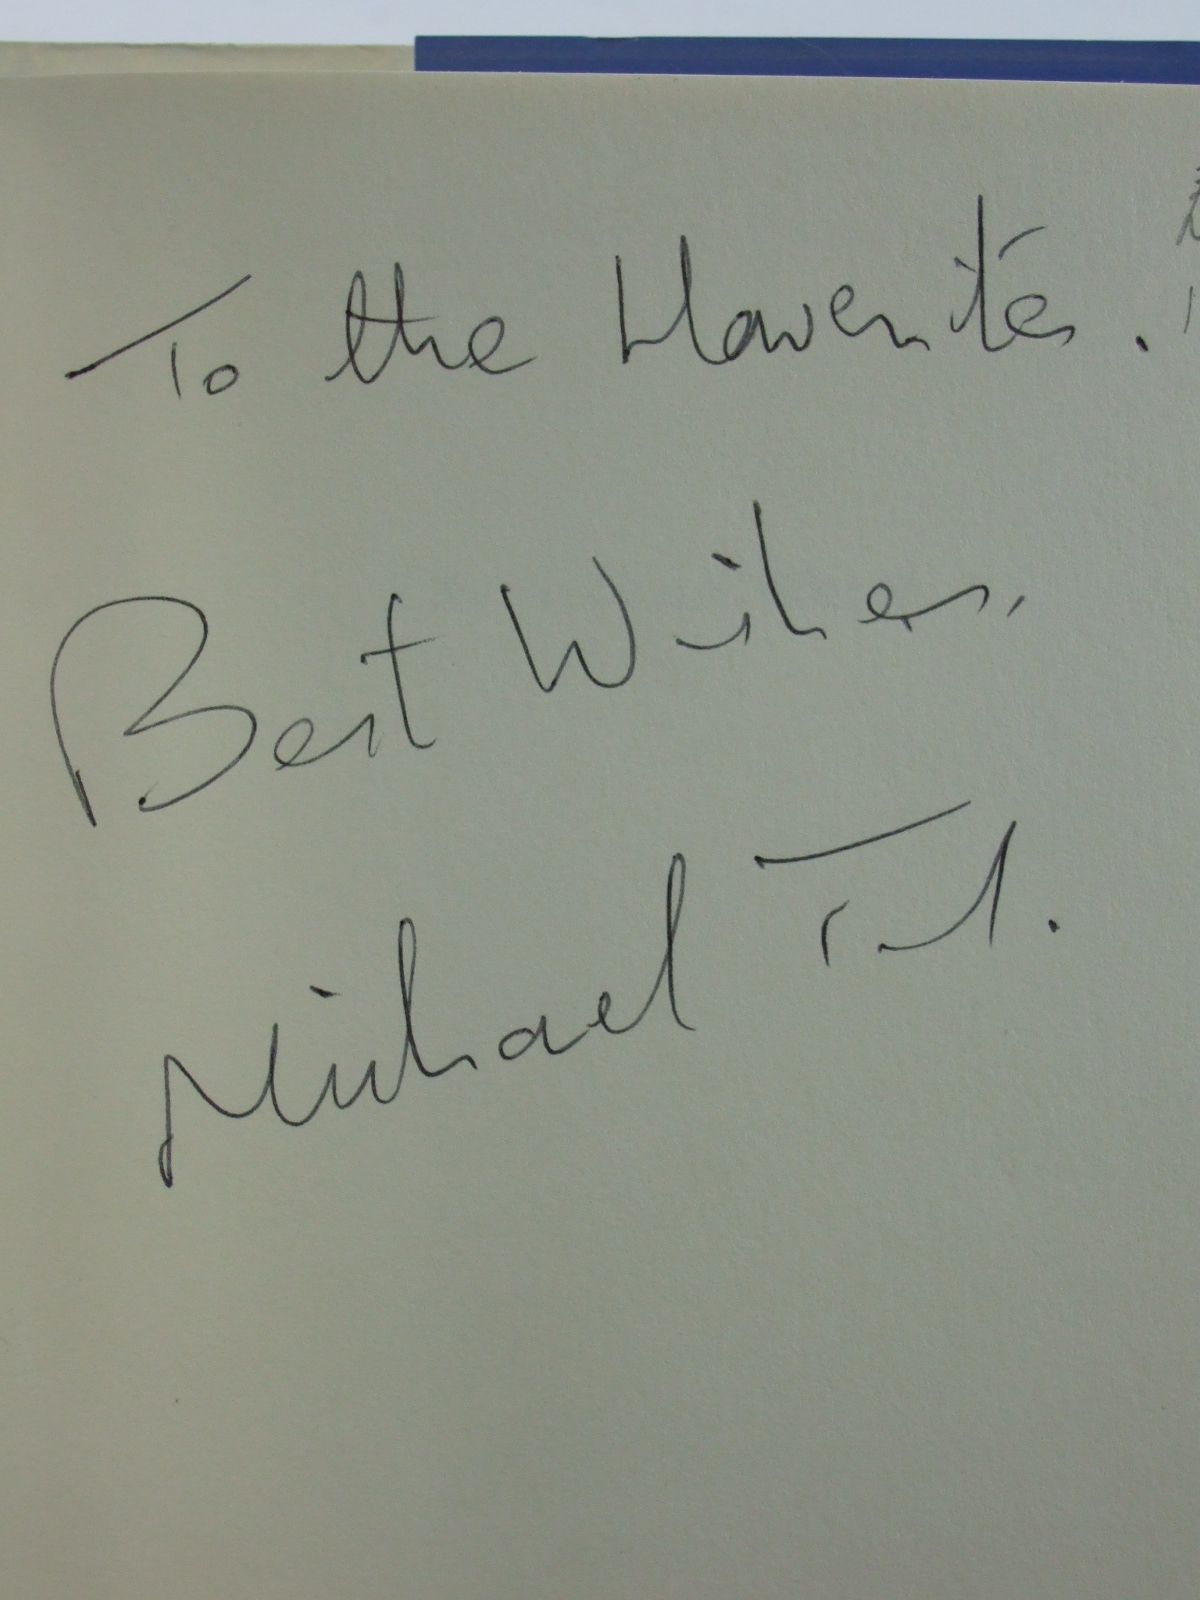 To the Havenites.
Best Wishes,
Michael